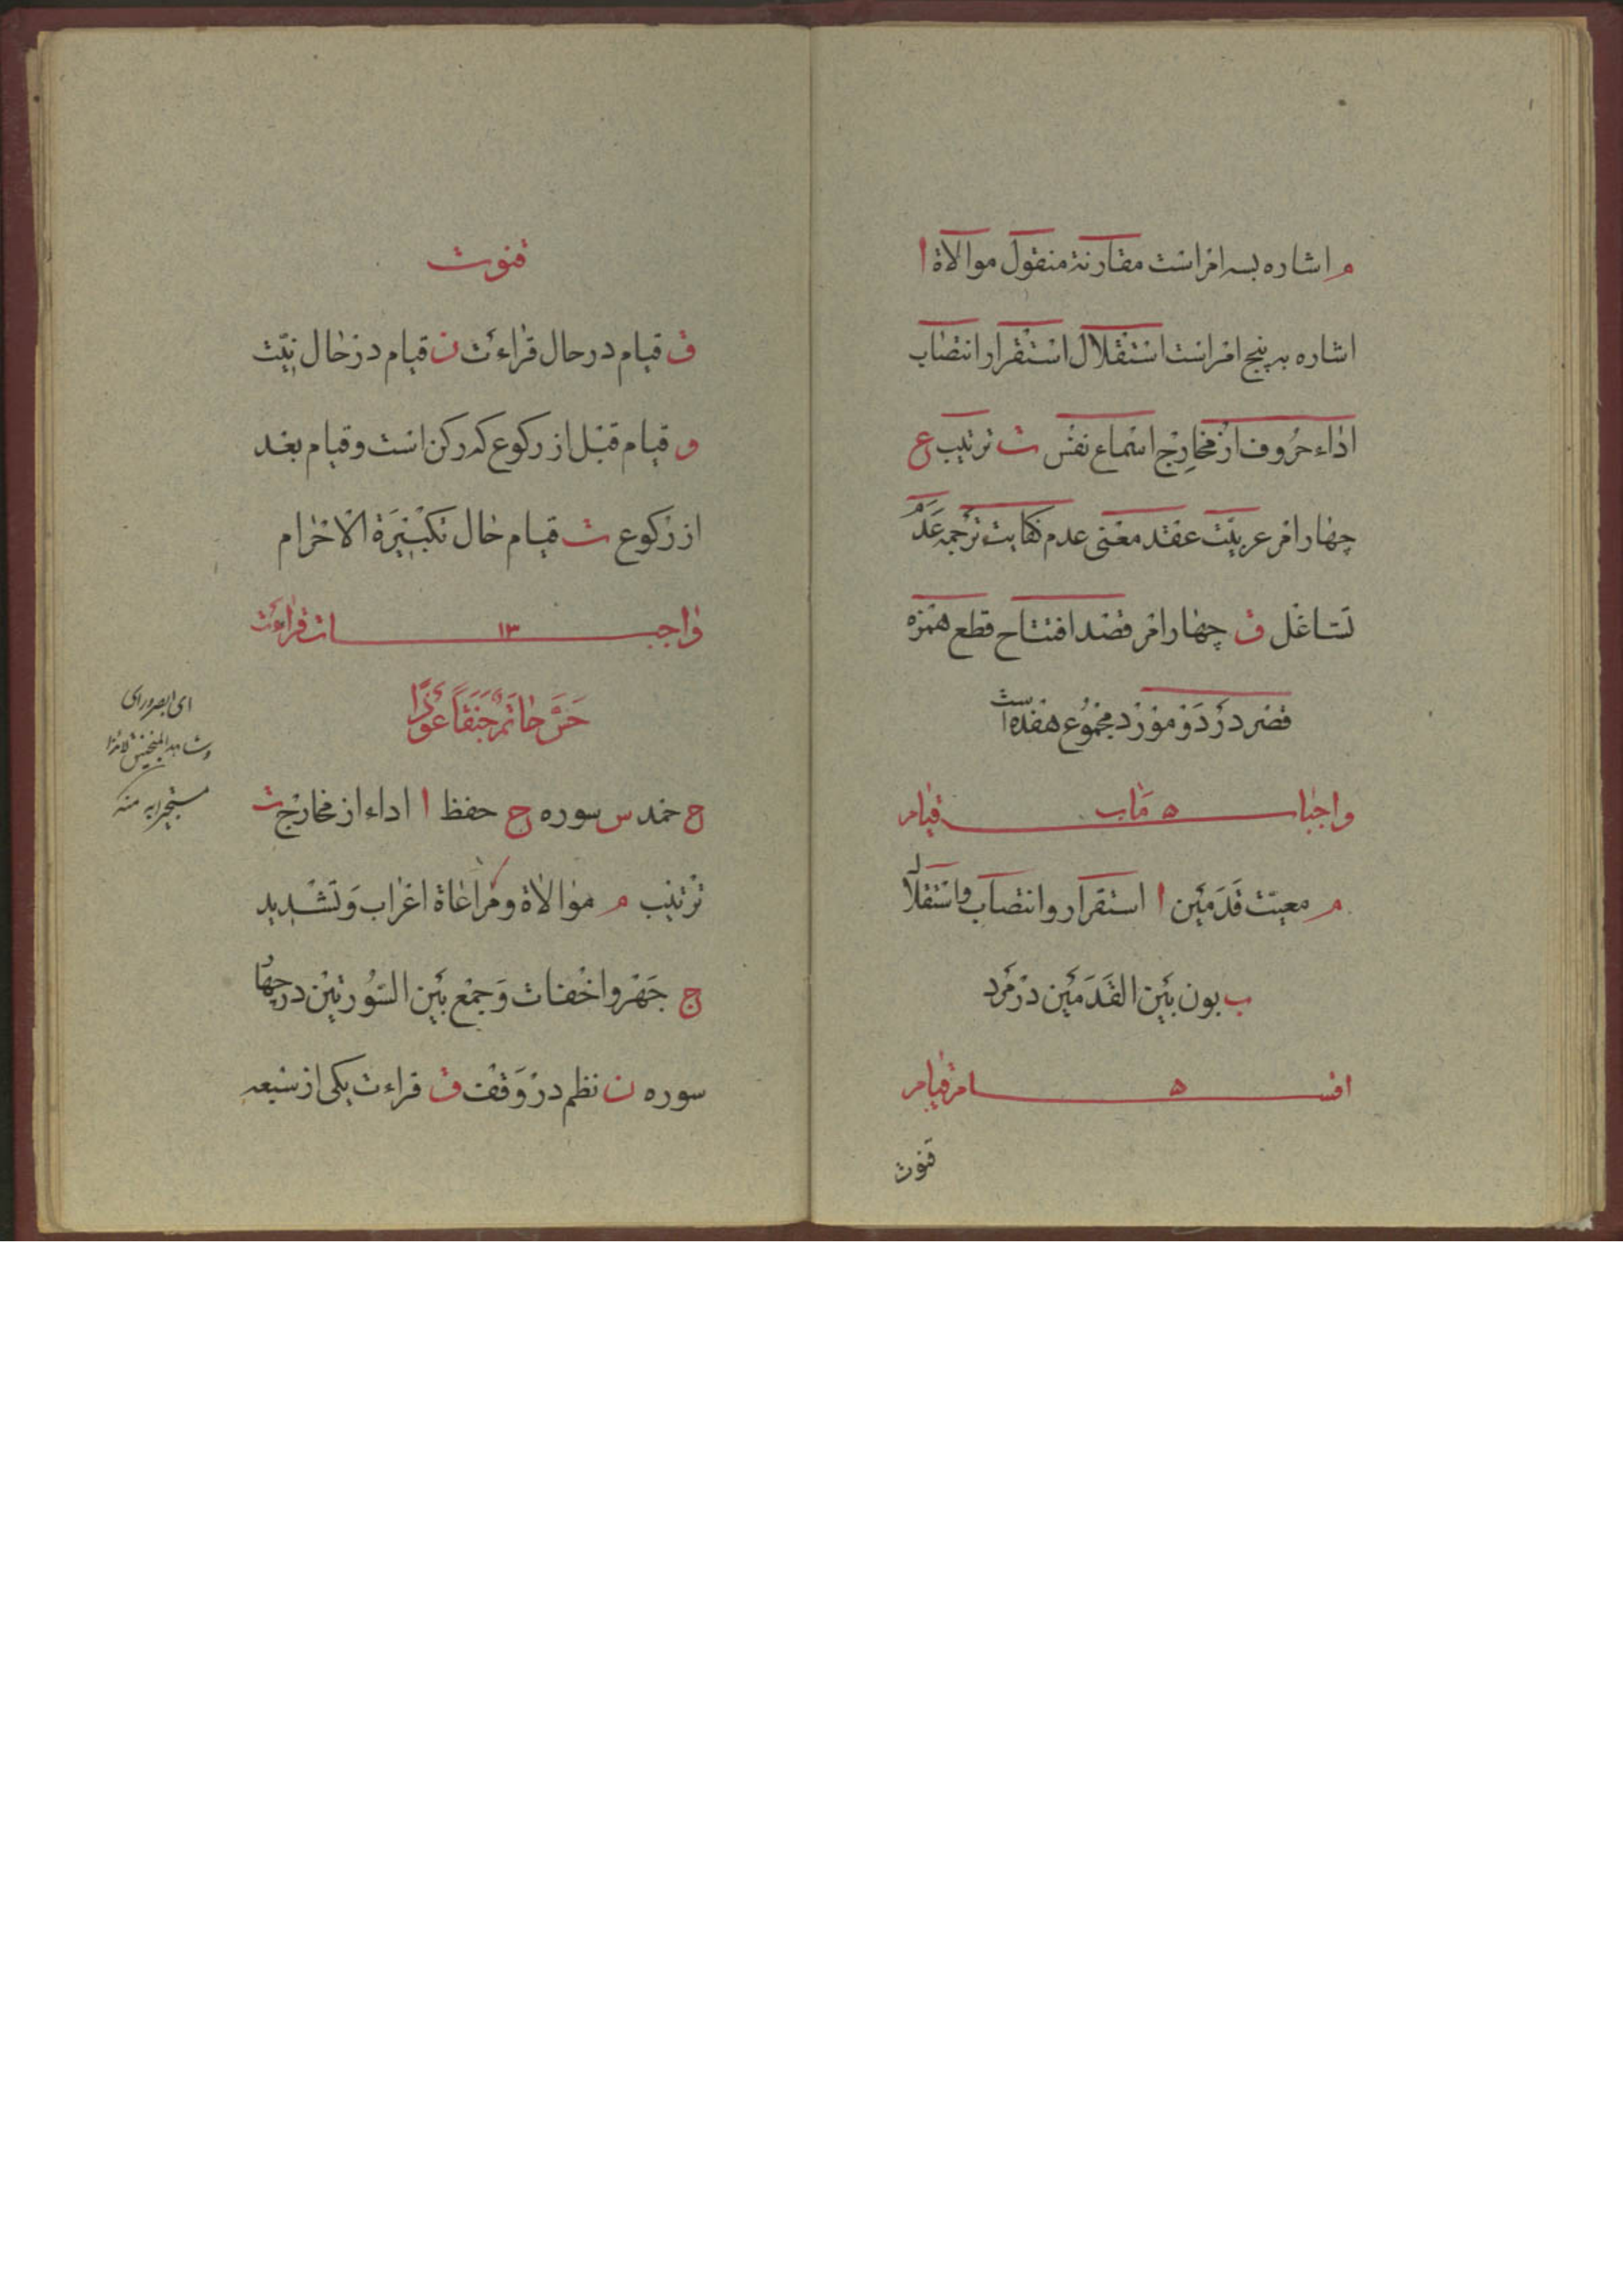 م اشاره بسه امر است مقارنة منقول موالاة ا
اشاره به پنج امر است استقلال استقرار انتصاب
اداء حروف از مخارج اسماع نفس ت ترتیب ع
چهار امر عربیّت عقد معنی عدم کفایت ترجمه عدم
تشاغل ق چهار امر قصد افتتاح قطع همزه
قصر در دو مورد مجموع هفده است
واجبات ۵ مٰاب قیام
م معیّت قَدَمَین ا استقرار و انتصاب و استقلال
ب بون بَین القَدَمَین در مَرد
اقسام ۵ قیام
قنوت
قنوت
ق قیام در حال قراءت ن قیام در حال نیّت
و قیام قبل از رکوع که رکن است و قیام بعد
از رکوع ت قیام حال تکبیرة الاحرام
واجبات ۱۳ قراءت
حَسَّ حٰاتَم جَنَقاً عَوْذاً
ح حمد س سوره ح حفظ ا اداء از مخارج ت
ترتیب م موالاة و مراعاة اعراب وَ تشدید
ج جَهر و اخفات وَ جمع بَین السُّورتین در چهار
سوره ن نظم در وَقف ق قراءت یکی از سبعه
ای ابصر و رای
منه